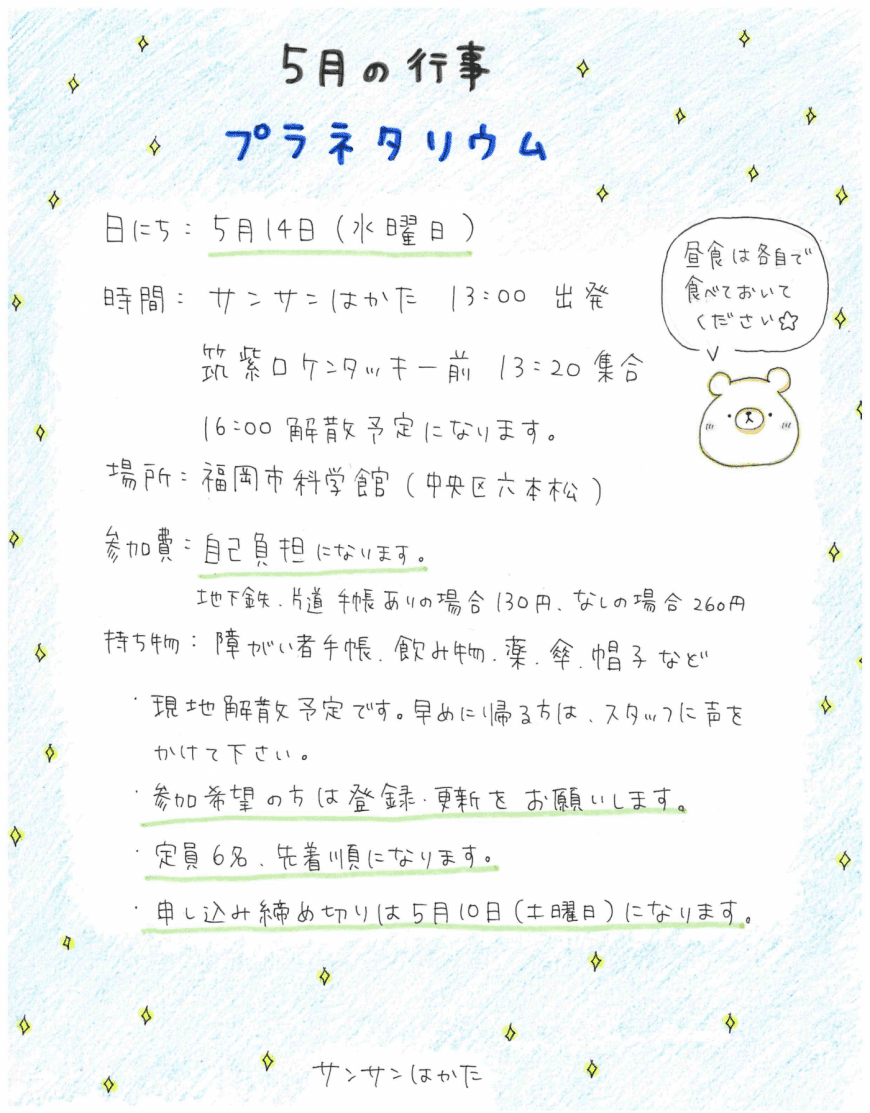 5月の行事
プラネタリウム
日にち：5月14日（水曜日）
時間：サンサンはかた 13:00 出発
筑紫口ケンタッキー前 13:20集合
16:00解散予定になります。
昼食は各自で
食べておいて
ください☆
場所：福岡市科学館（中央区六本松）
参加費：自己負担になります。
地下鉄、片道 手帳ありの場合130円、なしの場合260円
持ち物：障がい者手帳、飲み物、薬、傘、帽子など
・現地解散予定です。早めに帰る方は、スタッフに声を
かけて下さい。
・参加希望の方は登録・更新をお願いします。
・定員6名、先着順になります。
・申し込み締め切りは5月10日（土曜日）になります。
サンサンはかた